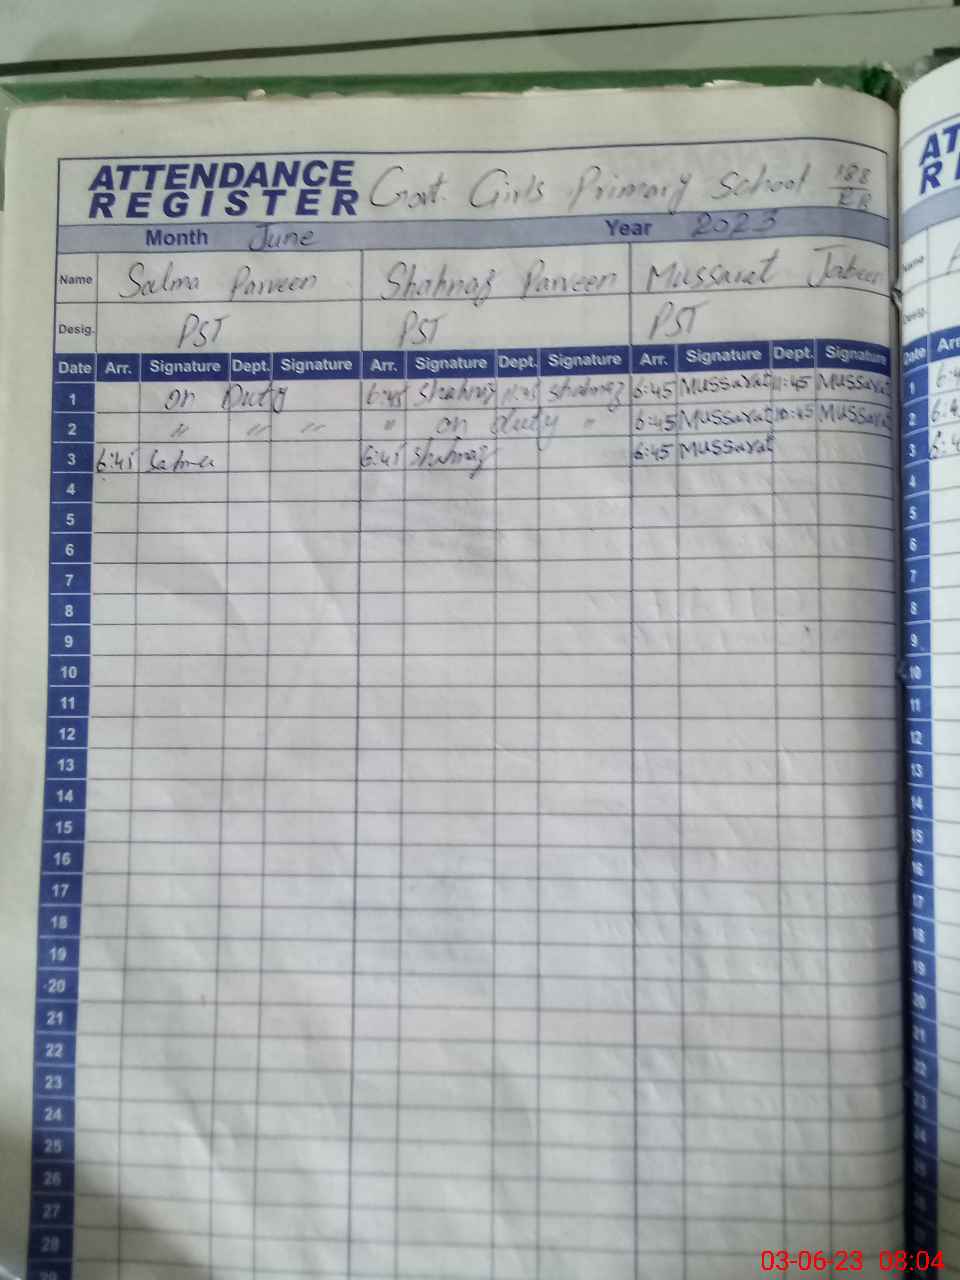 ATTENDANCE REGISTER Govt. Girls Primary School 188
Month June Year 2023
Name Salma Parveen Shahnaz Parveen Mussarat Jabeen
Desig. PST PST PST
Date Arr. Signature Dept. Signature Arr. Signature Dept. Signature Arr. Signature Dept. Signature
1 on Duty 6:45 Shahnaz 11:45 Shahnaz 6:45 Mussarat 11:45 Mussarat
2 〃 〃 〃 〃 on duty 〃 6:45 Mussarat 10:45 Mussarat
3 6:45 Salma 6:45 Shahnaz 6:45 Mussarat
4
5
6
7
8
9
10
11
12
13
14
15
16
17
18
19
20
21
22
23
24
25
26
27
28
29
AT
Name
Desig.
Date Arr
1
2
3
4
5
6
7
8
9
10
11
12
13
14
15
16
17
18
19
20
21
22
23
03-06-23 08:04